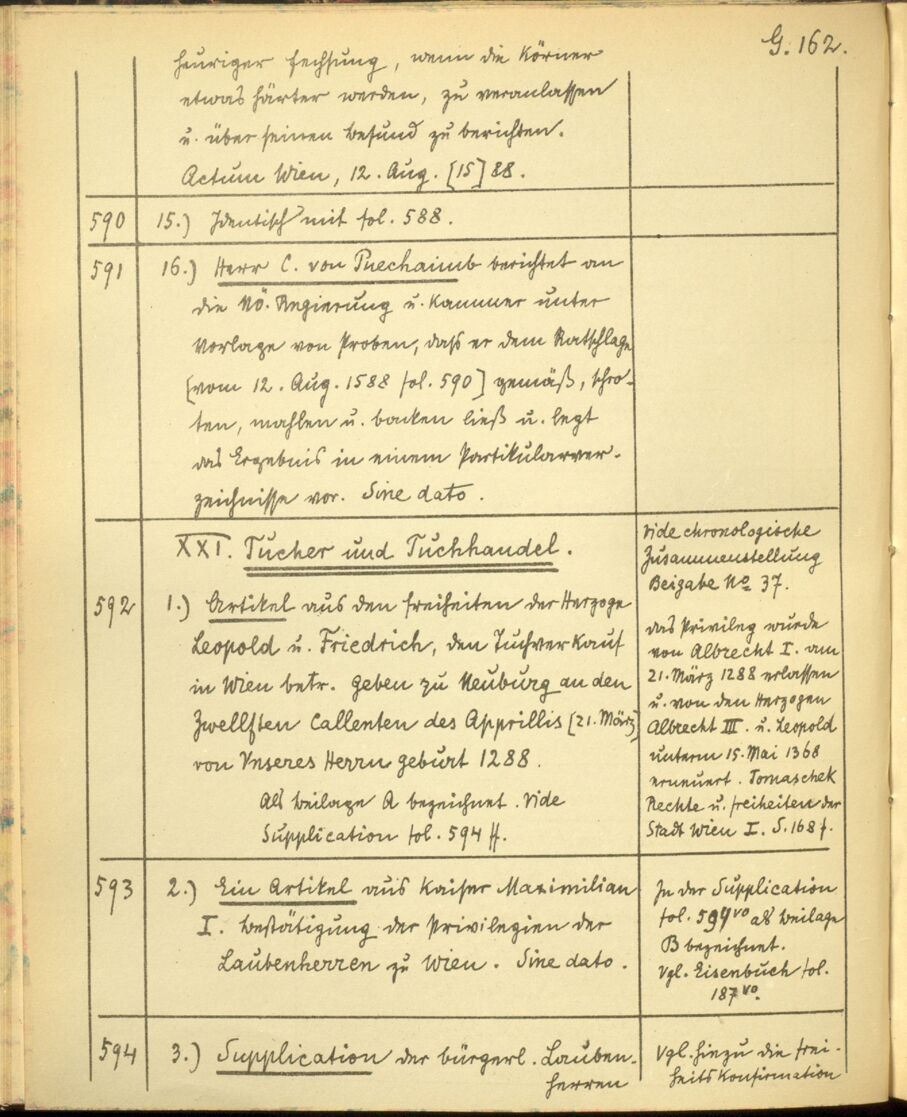 G. 162.
heuriger Fechsung, wenn die Körner
etwas härter werden, zu veranlassen
u. über seinen Befund zu berichten.
Actum Wien, 12. Aug. [15]88.
590 15.) Identisch mit fol. 588.
591 16.) Herr C. von Puechaimb berichtet an
die NÖ. Regierung u. Kammer unter
Vorlage von Proben, dass er dem Ratschlage
[vom 12. Aug. 1588 fol. 590] gemäß, schro-
ten, mahlen u. backen ließ u. legt
das Ergebnis in einem Partikularver-
zeichnisse vor. Sine dato.
XXI. Tucher und Tuchhandel.
Vide chronologische
Zusammenstellung
Beigabe No 37.
592 1.) Artikel aus den Freiheiten der Herzoge
Leopold u. Friedrich, den Tuchverkauf
in Wien betr. Geben zu Neuburg an den
Zwellften Callenten des Apprillis [21. März]
von Vnseres Herrn geburt 1288.
Als Beilage A bezeichnet. Vide
Supplication fol. 594 ff.
das Privileg wurde
von Albrecht I. am
21. März 1288 erlassen
u. von den Herzogen
Albrecht III. u. Leopold
unterm 15. Mai 1368
erneuert. Tomaschek
Rechte u. Freiheiten der
Stadt Wien I. S. 168 f.
593 2.) Ein Artikel aus Kaiser Maximilian
I. Bestätigung der Privilegien der
Laubenherren zu Wien. Sine dato.
In der Supplication
fol. 594vo als Beilage
B bezeichnet.
Vgl. Eisenbuch fol.
187vo.
594 3.) Supplication der bürgerl. Lauben-
herren
Vgl. hiezu die Frei-
heitskonfirmation